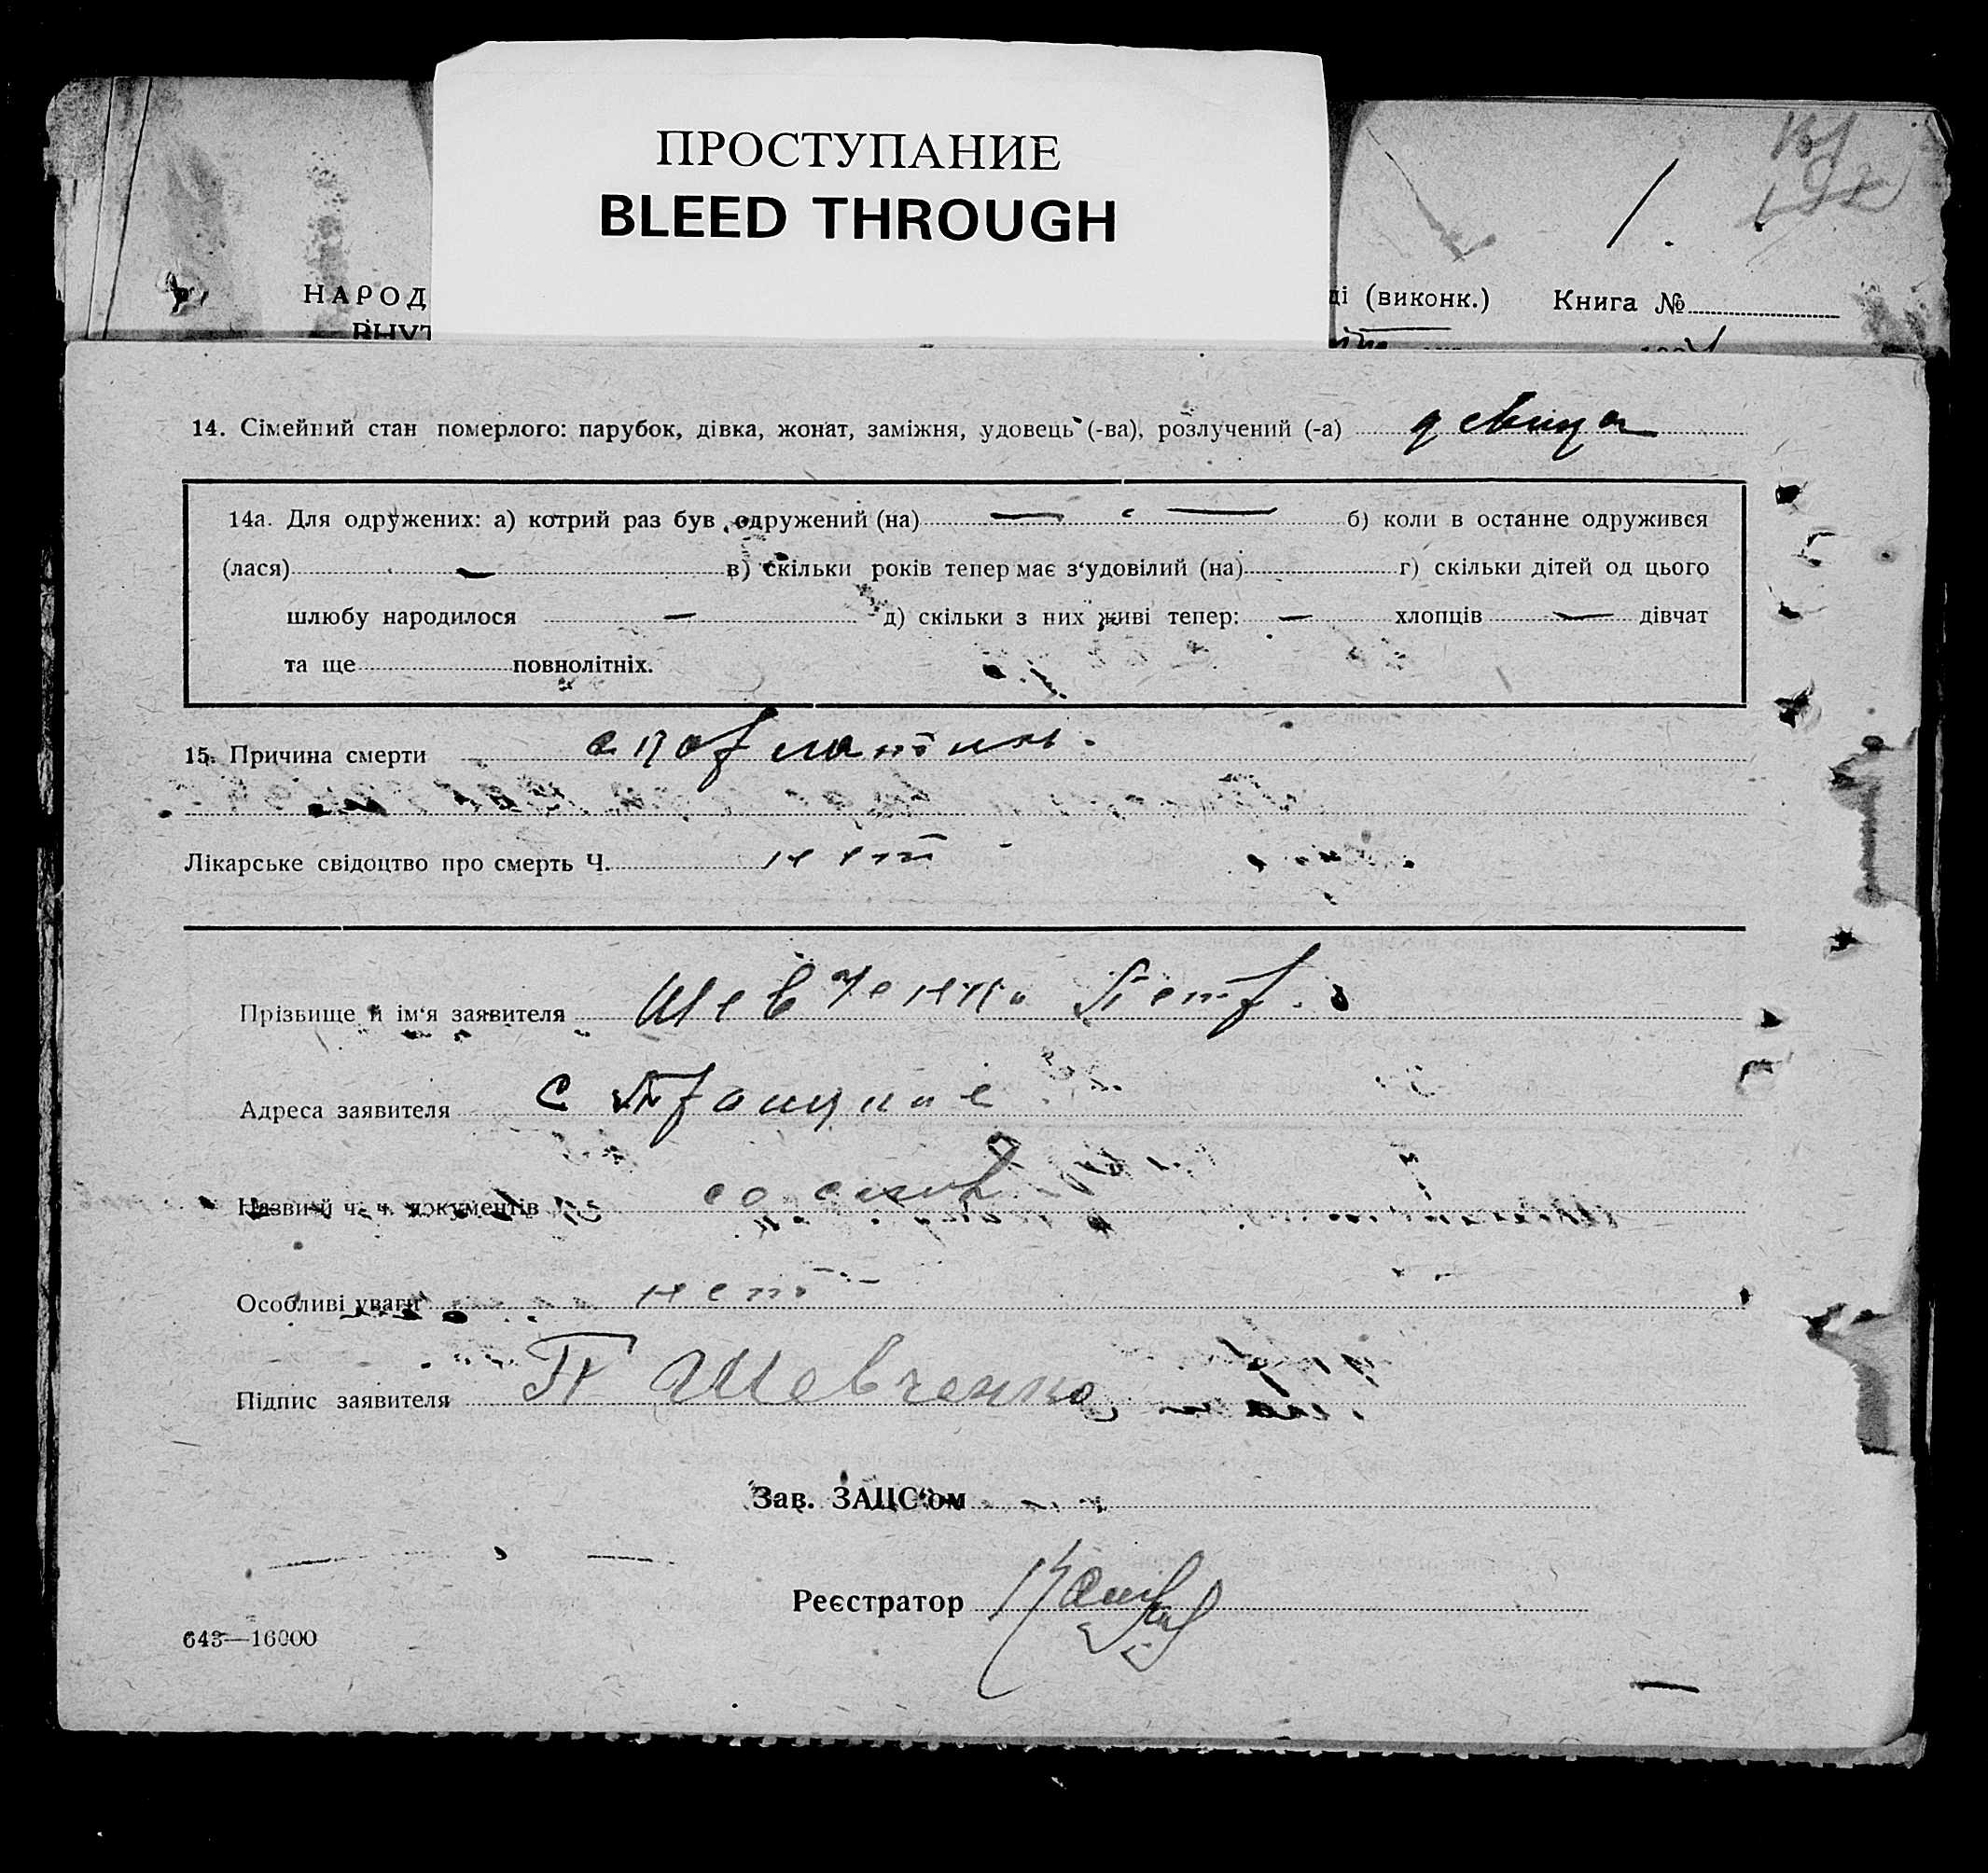 ПРОСТУПАНИЕ
BLEED THROUGH
1.
НАРОД
ді (виконк.) Книга №
14. Сімейний стан померлого: парубок, дівка, жонат, заміжня, удовець (-ва), розлучений (-а) девица
14а. Для одружених: а) котрий раз був одружений (на) — — б) коли в останнє одружився
(лася) — в) скільки років тепер має з'удовілий (на) г) скільки дітей од цього
шлюбу народилося — д) скільки з них живі тепер: — хлопців — дівчат
та ще повнолітніх.
15. Причина смерти
Лікарське свідоцтво про смерть Ч. нет
Прізвище й ім'я заявителя Шевченко Петр
Адреса заявителя с
Назви й ч. ч. документів со слов
Особливі уваги нет
Підпис заявителя П Шевченко
Зав. ЗАЦС'ом
Реєстратор
643—16000